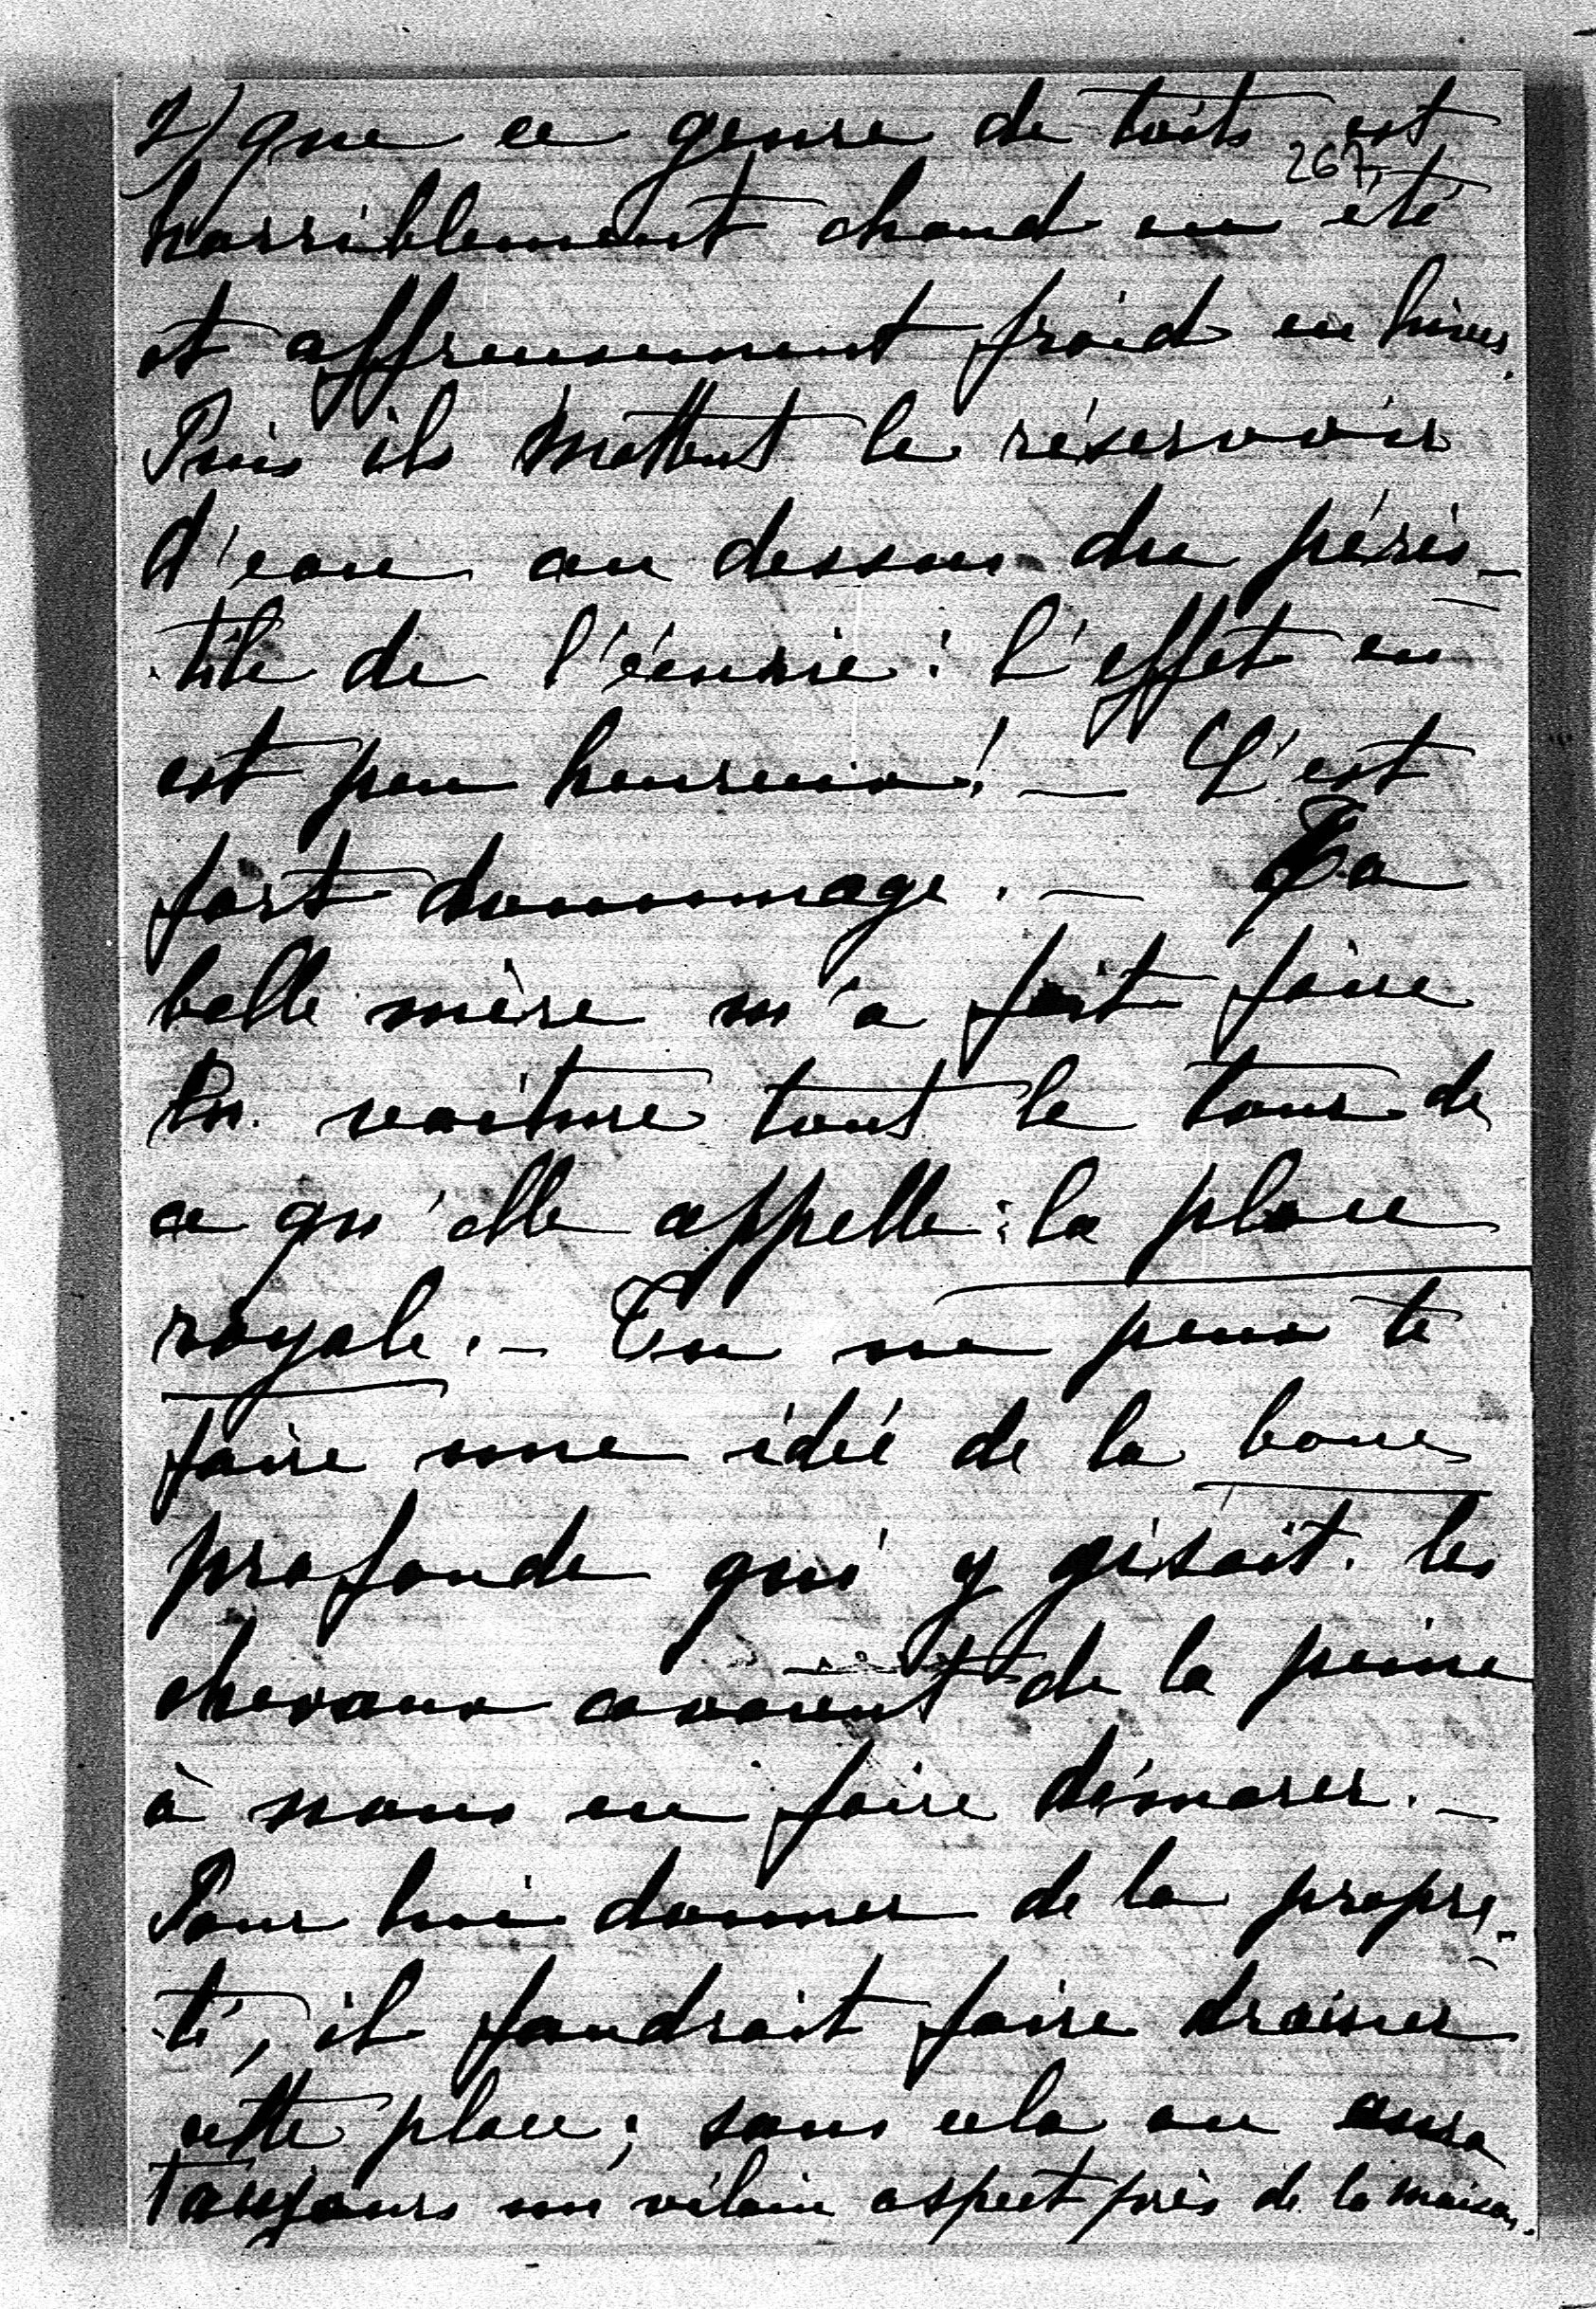 2) que ce genre de toits est
267
horriblement chaud en été
et affreusement froid en hiver.
Puis ils mettent le réservoir
d'eau au dessus du péris-
-tile de l'écurie : L'effet en
est peu heureux ! — C'est
fort dommage. — Ta
belle mère m'a fait faire
en voiture tout le tour de
ce qu'elle appelle : la place
royale. — Tu ne peux te
faire une idée de la boue
profonde qui y gisait. les
chevaux avaient de la peine
à nous en faire démarer. —
Pour lui donner de la propre-
-té, il faudrait faire drainer
cette place ; sans cela on aura
toujours un vilain aspect près de la maison.